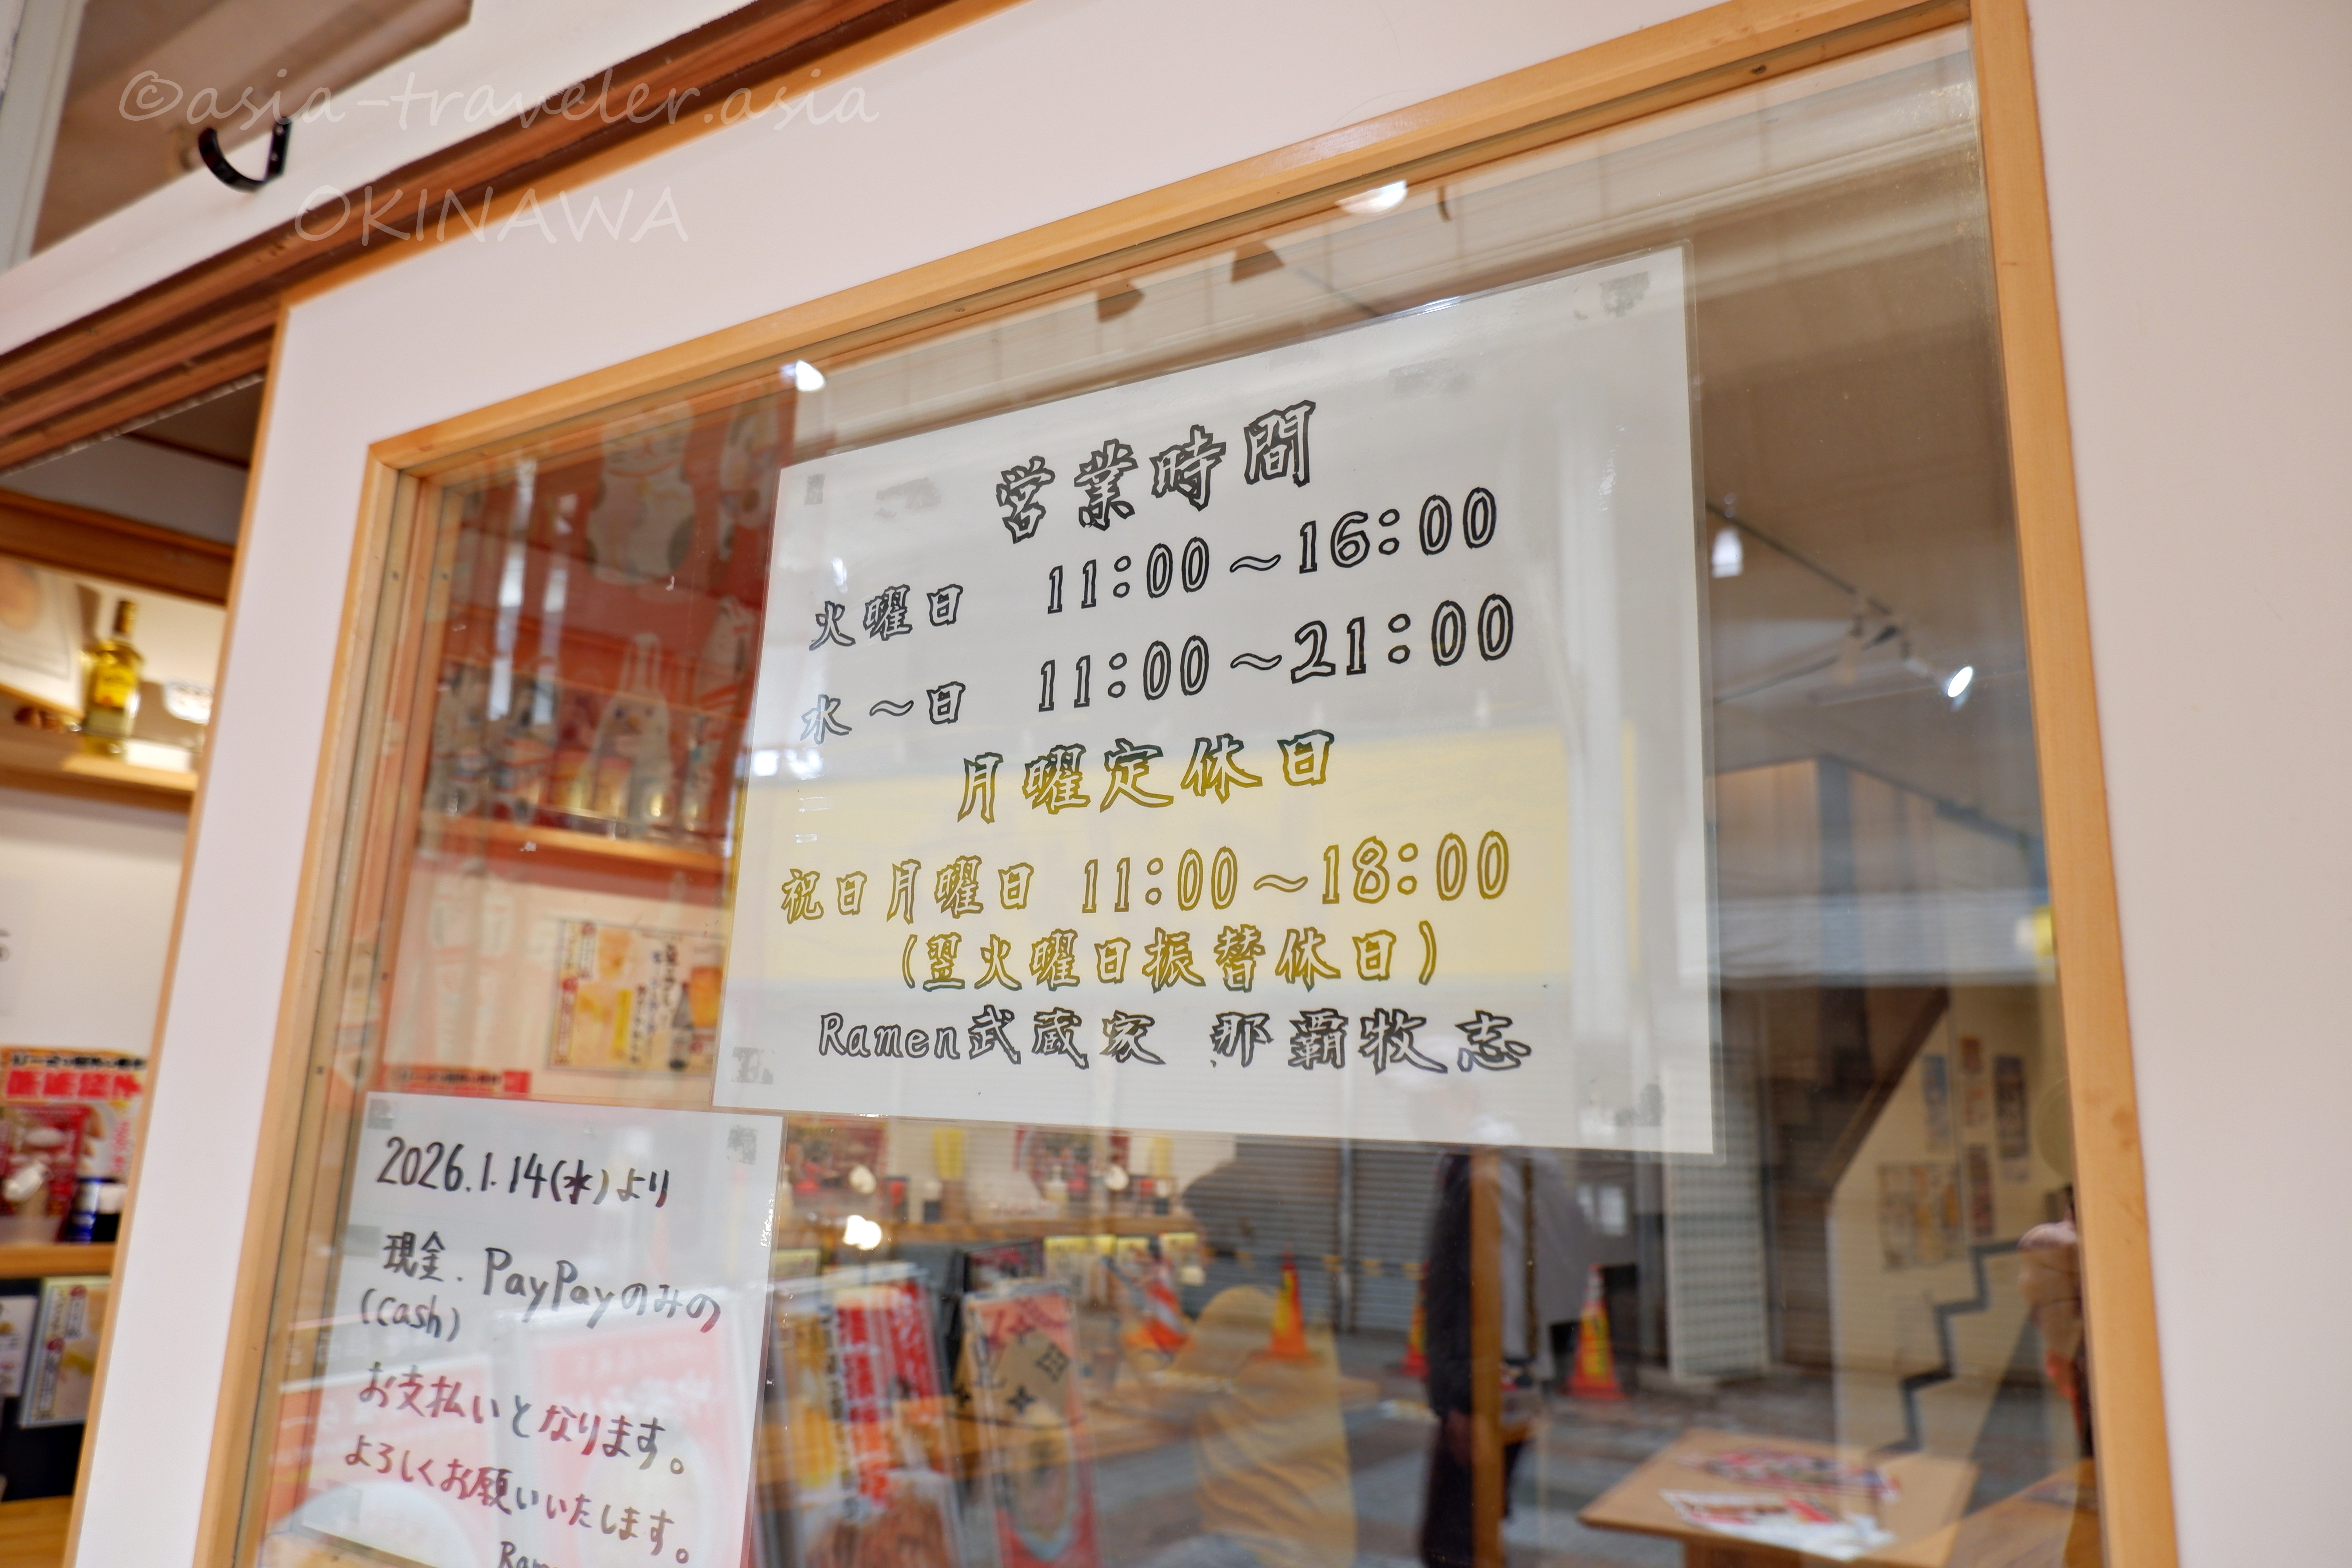 ©asia-traveler.asia
OKINAWA
営業時間
火曜日 11:00～16:00
水～日 11:00～21:00
月曜定休日
祝日月曜日 11:00～18:00
(翌火曜日振替休日)
Ramen武蔵家 那覇牧志
2026.1.14(水)より
現金. PayPayのみの
(cash)
お支払いとなります。
よろしくお願いいたします。